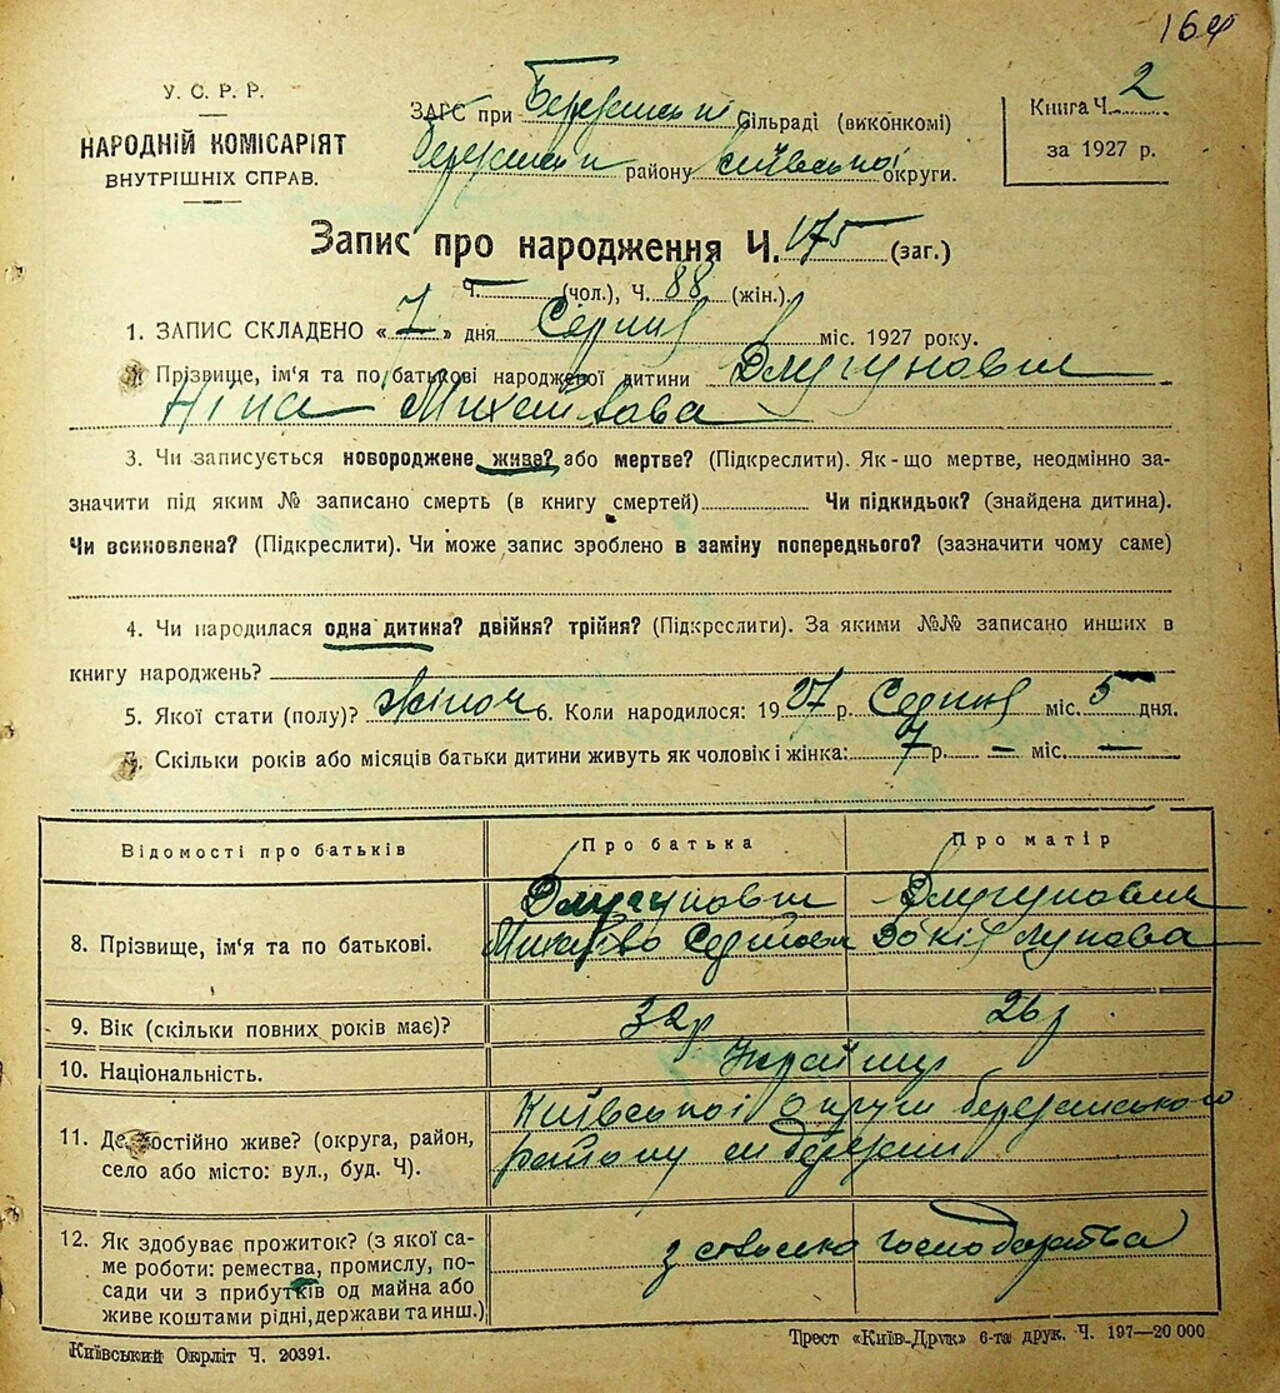 164
У. С. Р. Р.
НАРОДНІЙ КОМІСАРІЯТ
ВНУТРІШНІХ СПРАВ.
ЗАГС при Сільраді (виконкомі)
району Київської округи.
Книга Ч. 2
за 1927 р.
Запис про народження Ч. 175 (заг.)
Ч. — (чол.), Ч. 88 (жін.).
1. ЗАПИС СКЛАДЕНО «7» дня Серпня міс. 1927 року.
Прізвище, ім'я та по батькові народженої дитини
Ніна Михайлова
3. Чи записується новороджене живе? або мертве? (Підкреслити). Як-що мертве, неодмінно за-
значити під яким № записано смерть (в книгу смертей) Чи підкидьок? (знайдена дитина).
Чи всиновлена? (Підкреслити). Чи може запис зроблено в заміну попереднього? (зазначити чому саме)
4. Чи народилася одна дитина? двійня? трійня? (Підкреслити). За якими №№ записано инших в
книгу народжень?
5. Якої стати (полу)? жіноч 6. Коли народилося: 1927 р. Серпня міс. 5 дня.
7. Скільки років або місяців батьки дитини живуть як чоловік і жінка: 7 р. — міс. —
Відомості про батьків
Про батька
Про матір
8. Прізвище, ім'я та по батькові.
9. Вік (скільки повних років має)?
32р
26р
10. Національність.
Українці
11. Де постійно живе? (округа, район,
село або місто: вул., буд. Ч).
Київської округи березанського
району
12. Як здобуває прожиток? (з якої са-
ме роботи: ремества, промислу, по-
сади чи з прибутків од майна або
живе коштами рідні, держави та инш.)
з сільського господарства
Київський Окрліт Ч. 20391.
Трест «Київ-Друк» 6-та друк. Ч. 197—20 000